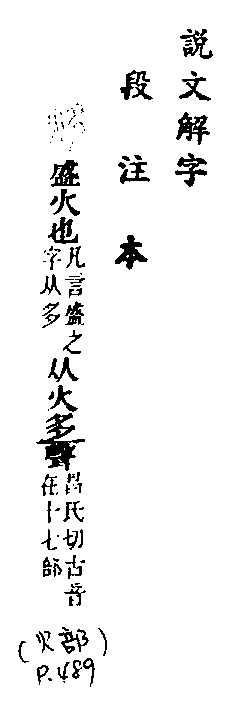 說文解字
段注本
盛火也凡言盛之字从多从火多聲昌氏切古音在十七部
(火部)
P.489